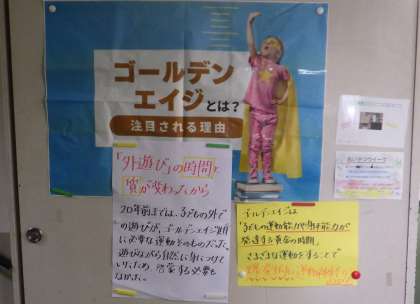 ゴールデン
エイジとは?
注目される理由
「外遊び」の時間と
質が変わったから
20年前までは、子どもの外で
の遊びが、ゴールデンエイジ期
に必要な運動そのものだった。
遊びながら自然に身につけて
いたため
必要も
なかった。
ゴールデンエイジは
"子どもの運動能力や身体能力が
発達する黄金の時期。
さまざまな運動をすることで